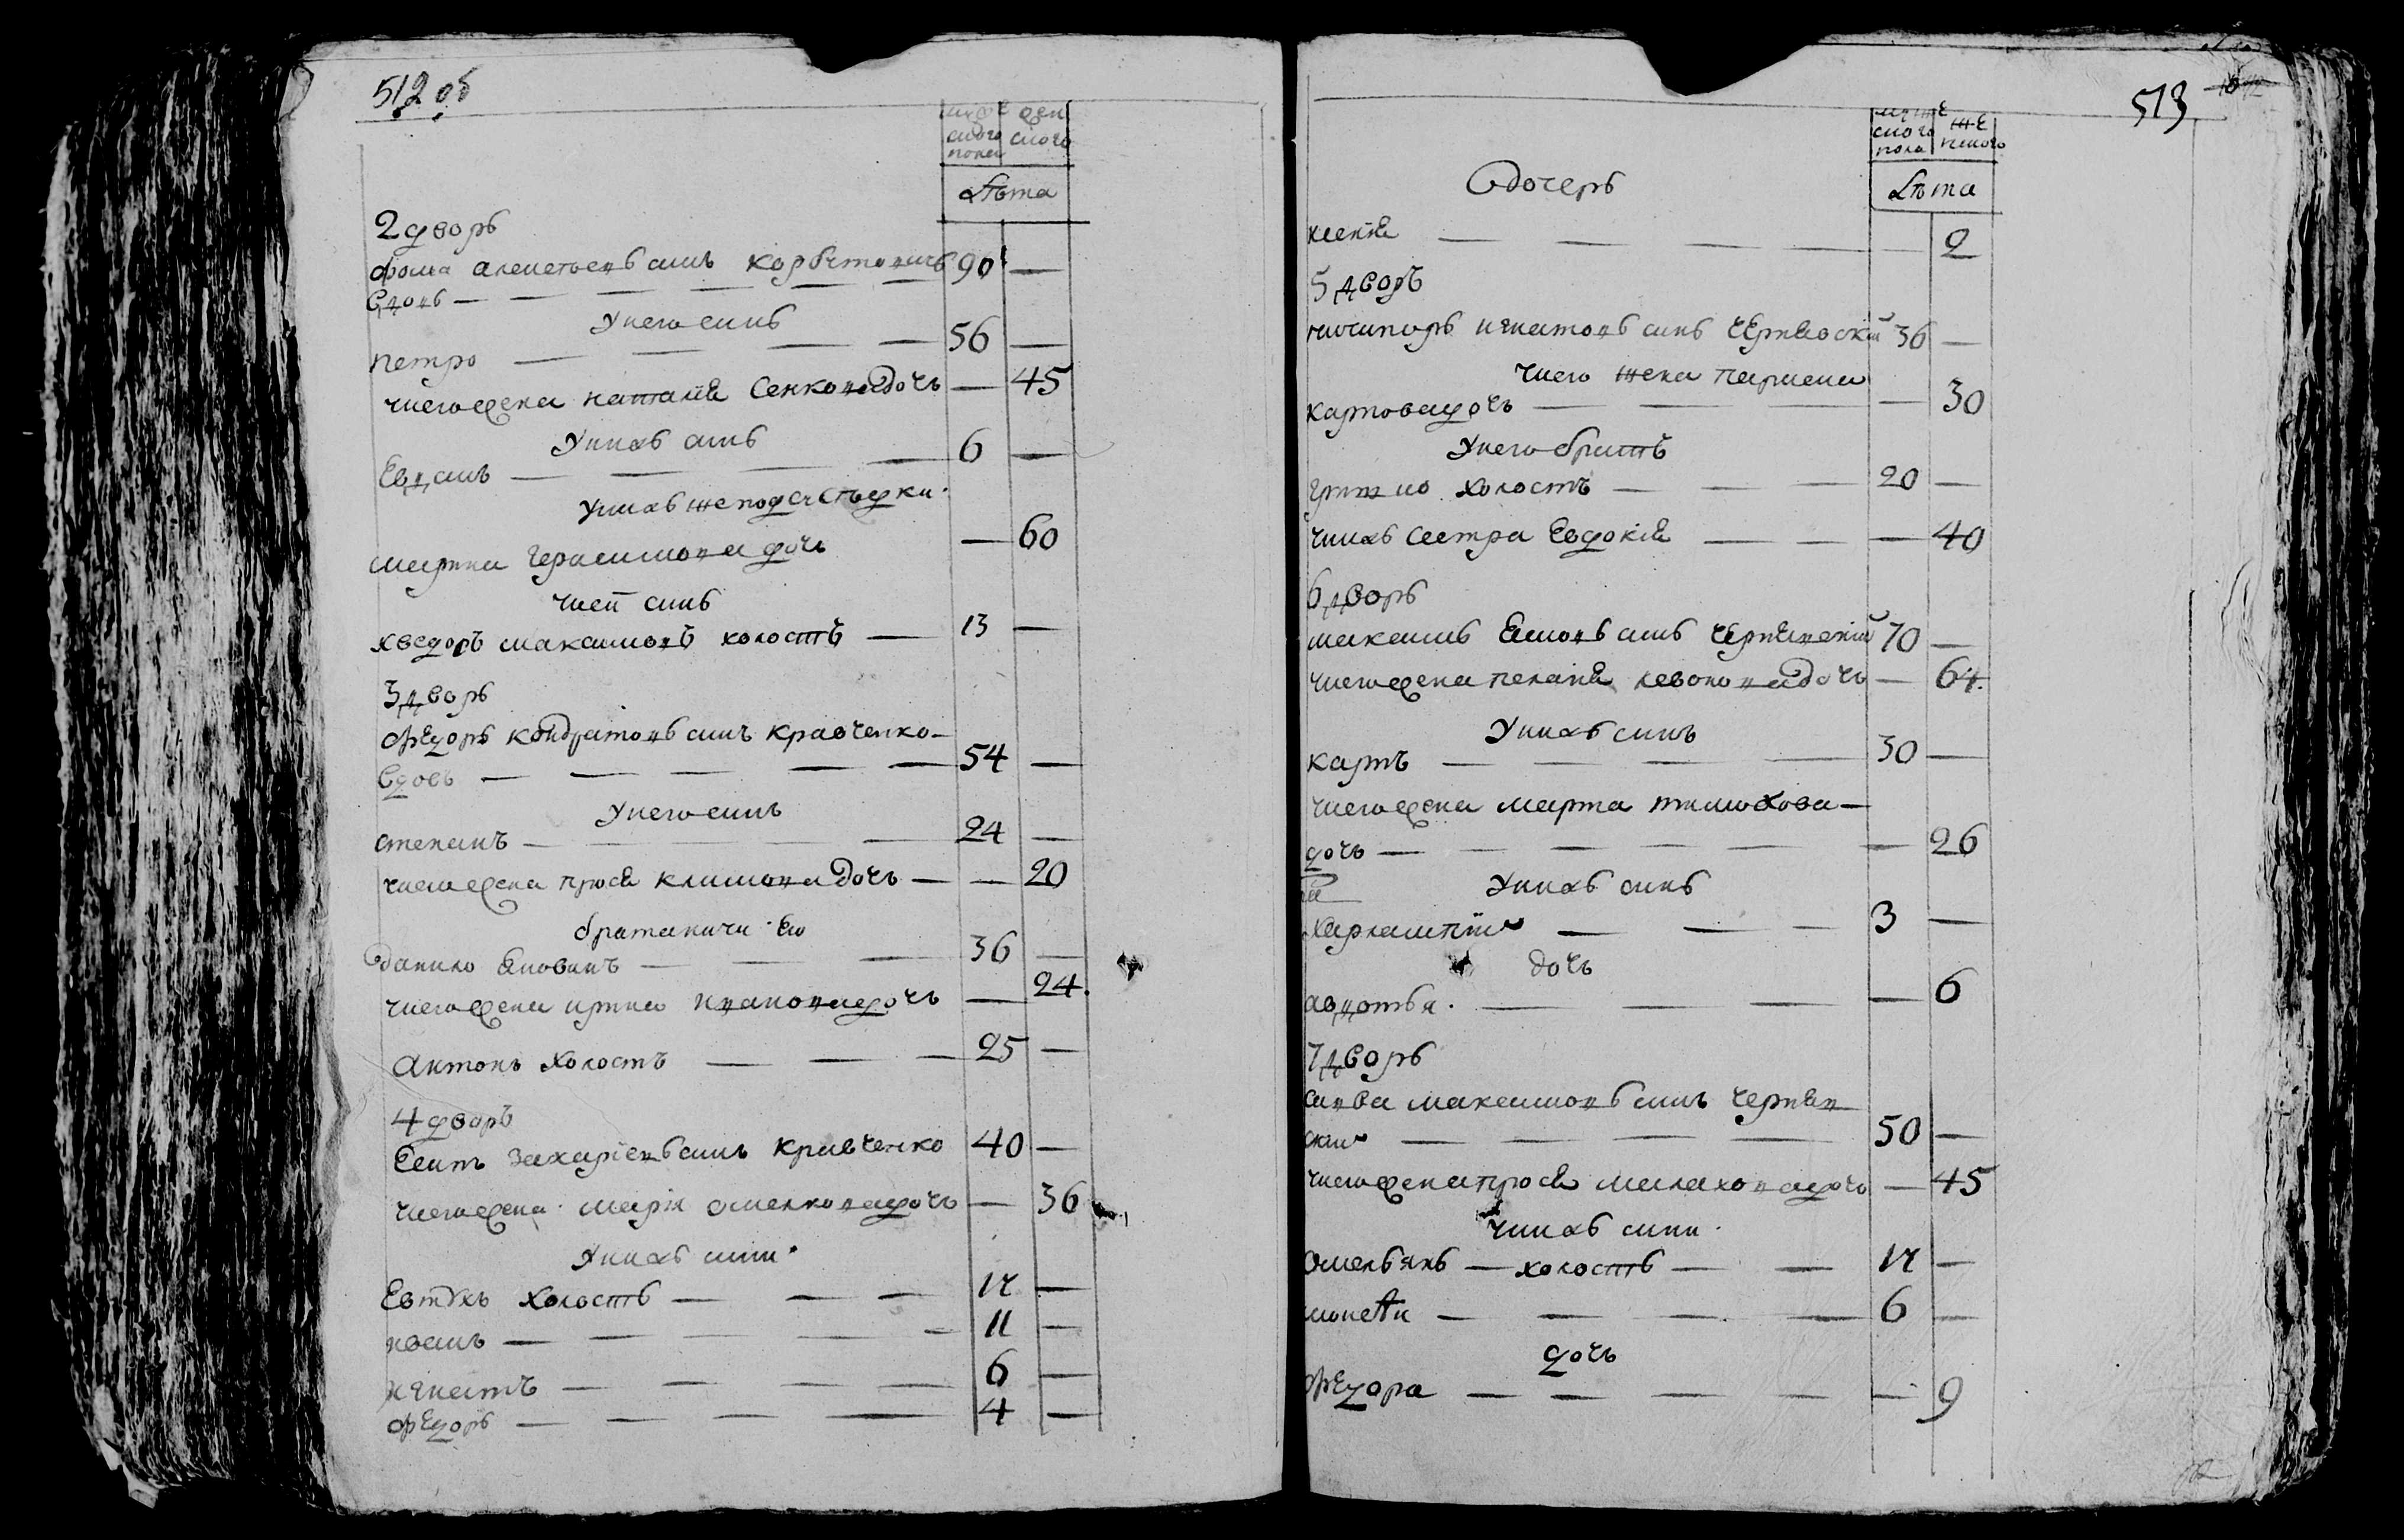 512 об
мужеского пола
женского
Лѣта
2 дворъ
фома алексѣевъ синъ
вдовъ — — — — — — 90 —
У него синъ
петро — — — — 56 —
у него жена наталія Сенкова дочь — 45
У нихъ синъ
Евдамъ — — — — 6 —
У нихъ же подсусѣдки
марина герасимова дочь — 60
у ней синъ
хведоръ максимовъ холостъ — 13 —
3 дворъ
Фєдоръ кондратовъ синъ кравченко —
вдовъ — — — — — 54 —
У него синъ
степанъ — — — — 24 —
у него жена прися климова дочь — — 20
братаничи его
данило — — — 36 —
у него жена ирина дочь — 24.
антонъ холостъ — — — 25 —
4 дворъ
захаріевъ синъ кравченко 40 —
у него жена марія омелкова дочь — 36
У нихъ сини
Евтухъ холостъ — — — 14 —
иванъ — — — — 11 —
игнатъ — — — — 6 —
фєдоръ — — — — 4 —
513
мужеского пола
женского
Лѣта
дочеръ
ксенія — — — — — 2
5 дворъ
ничипоръ игнатовъ синъ чернявскій 36 —
у него жена
карпова дочь — — — — 30
У него братъ
холостъ — — — 20 —
у нихъ сестра Евдокія — — — 40
6 дворъ
максимъ синъ чернявскій 70 —
у него жена пелагія дочь — 64.
У нихъ синъ
карпъ — — — — 30 —
у него жена марта тимохова —
дочь — — — — — — 26
У нихъ синъ
Харлампій — — — 3 —
дочь
авдотья. — — — 6
7 дворъ
савва максимовъ синъ черняв
скій — — — — 50 —
у него жена прися малахова дочь — 45
у нихъ сини
омельянъ — холостъ — — 14 —
— — — — 6 —
дочь
фєдора — — — — — 9